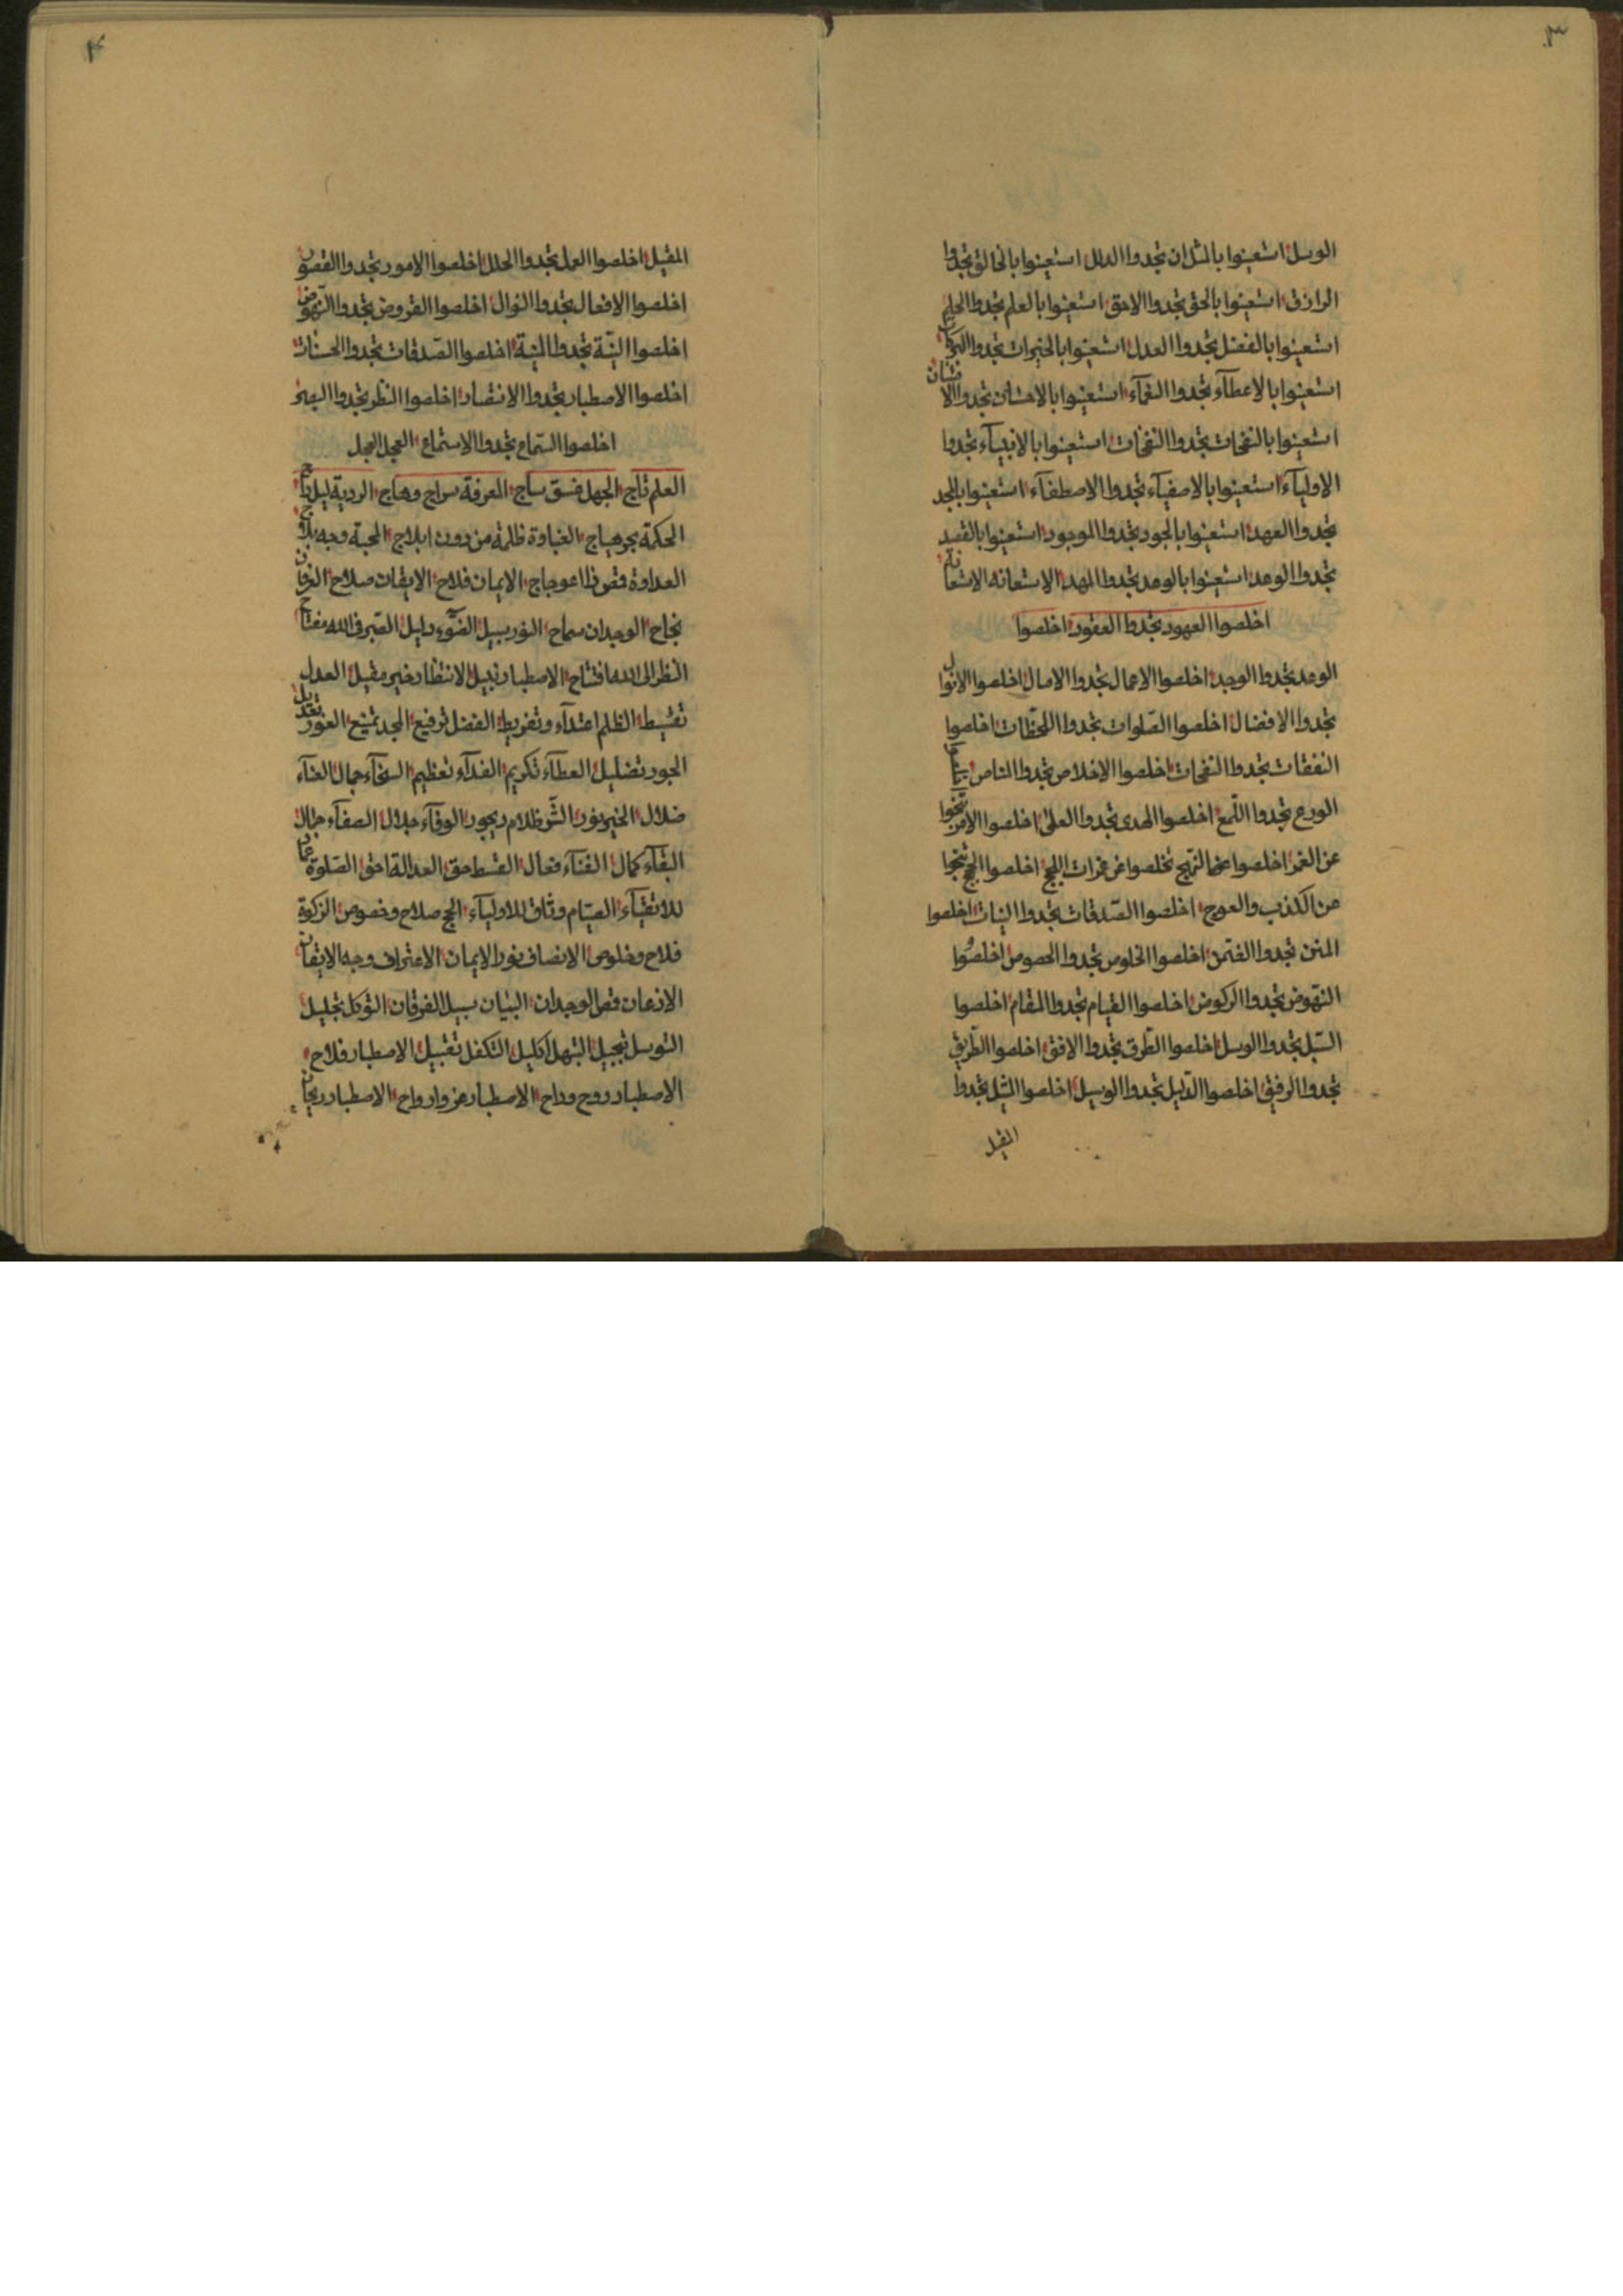 ٣
الوسل استعينوا بالمثل ان تجدوا الدلل استعينوا بالخالق تجدوا
الرازق استعينوا بالحق تجدوا الاحق استعينوا بالعلم تجدوا الحلم
استعينوا بالفضل تجدوا العدل استعينوا بالخيرات تجدوا البركات
استعينوا بالاعطآء تجدوا النعمآء استعينوا بالاحسان تجدوا الا
استعينوا بالنفحات تجدوا النفخات استعينوا بالانبيآء تجدوا
الاوليآء استعينوا بالاصفيآء تجدوا الاصطفآء استعينوا بالجد
تجدوا العهد استعينوا بالجود تجدوا الموجود استعينوا بالقصد
تجدوا الوعد استعينوا بالوعد تجدوا المهد الاستعانه الاستعانة
اخلصوا العهود تجدوا العقود اخلصوا
الوعد تجدوا الوجد اخلصوا الاعمال تجدوا الامال اخلصوا الانوال
تجدوا الافضال اخلصوا الصّلوات تجدوا اللحظات اخلصوا
النفقات تجدوا النفحات اخلصوا الاخلاص تجدوا الناص
الورع تجدوا اللّمع اخلصوا الهدى تجدوا العلى اخلصوا الامر تنجوا
عن الغمر اخلصوا عن النهج تخلصوا عن غمرات اللجج اخلصوا الحج تنجوا
عن الكذب والعوج اخلصوا الصّدقات تجدوا النيات اخلصوا
المتن تجدوا الفتمن اخلصوا الخلوص تجدوا الحصوص اخلصوا
النهوض تجدوا الركوض اخلصوا القيام تجدوا المقام اخلصوا
السّبل تجدوا الوسل اخلصوا الطّرق تجدوا الافق اخلصوا الطّريق
تجدوا الرفيق اخلصوا الدّليل تجدوا الوسيل اخلصوا المثيل تجدوا
المقيل
۴
المقيل اخلصوا العمل تجدوا الحلل اخلصوا الامور تجدوا القصور
اخلصوا الافعال تجدوا النوال اخلصوا القروض تجدوا النّهوض
اخلصوا النيّة تجدوا المنية اخلصوا الصّدقات تجدوا الحسنات
اخلصوا الاصطبار تجدوا الانتصار اخلصوا النظر تجدوا البصر
اخلصوا السّماع تجدوا الاستماع العجل العجل
العلم تاج الجهل غسق ساج المعرفة سراج وهاج الردية ليل داج
الحكمة بحر هياج الغباوة ظلمة من دون ابلاج المحبة وجه بلاج
العداوة قمص ذا اعوجاج الايمان فلاح الايقان صلاح العرفان
نجاح الوجدان سماح النور سبيل الضّوء دليل الصّبر فى الله مفتاح
النظر الى الله افتتاح الاصطبار نبيل الانتظار خير مقيل العدل
تقسيط الظلم اعتدآء وتفريط الفضل ترفيع المجد تمنيع العور تعديل
الجور تضليل العطآء تكريم الفدآء تعظيم السخآء جمال العنآء
ضلال الخير نور الشّر ظلام ديجور الوفآء جلال الصفآء جمال
البقآء كمال الفنآء فعال القسط حق العدالة احق الصّلوة عماد
للاتقيآء الصيّام وثاق للاوليآء الحج صلاح وخصوص الزكوة
فلاح وخلوص الانصاف نور الايمان الاعتراف وجه الايقان
الاذعان قمص الوجدان البيان سبيل الفرقان التوكل تجليل
التوسل تبجيل التبهل اكليل التكفل تقبيل الاصطبار فلاح
الاصطبار روح وراح الاصطبار عز وارواح الاصطبار ريحان